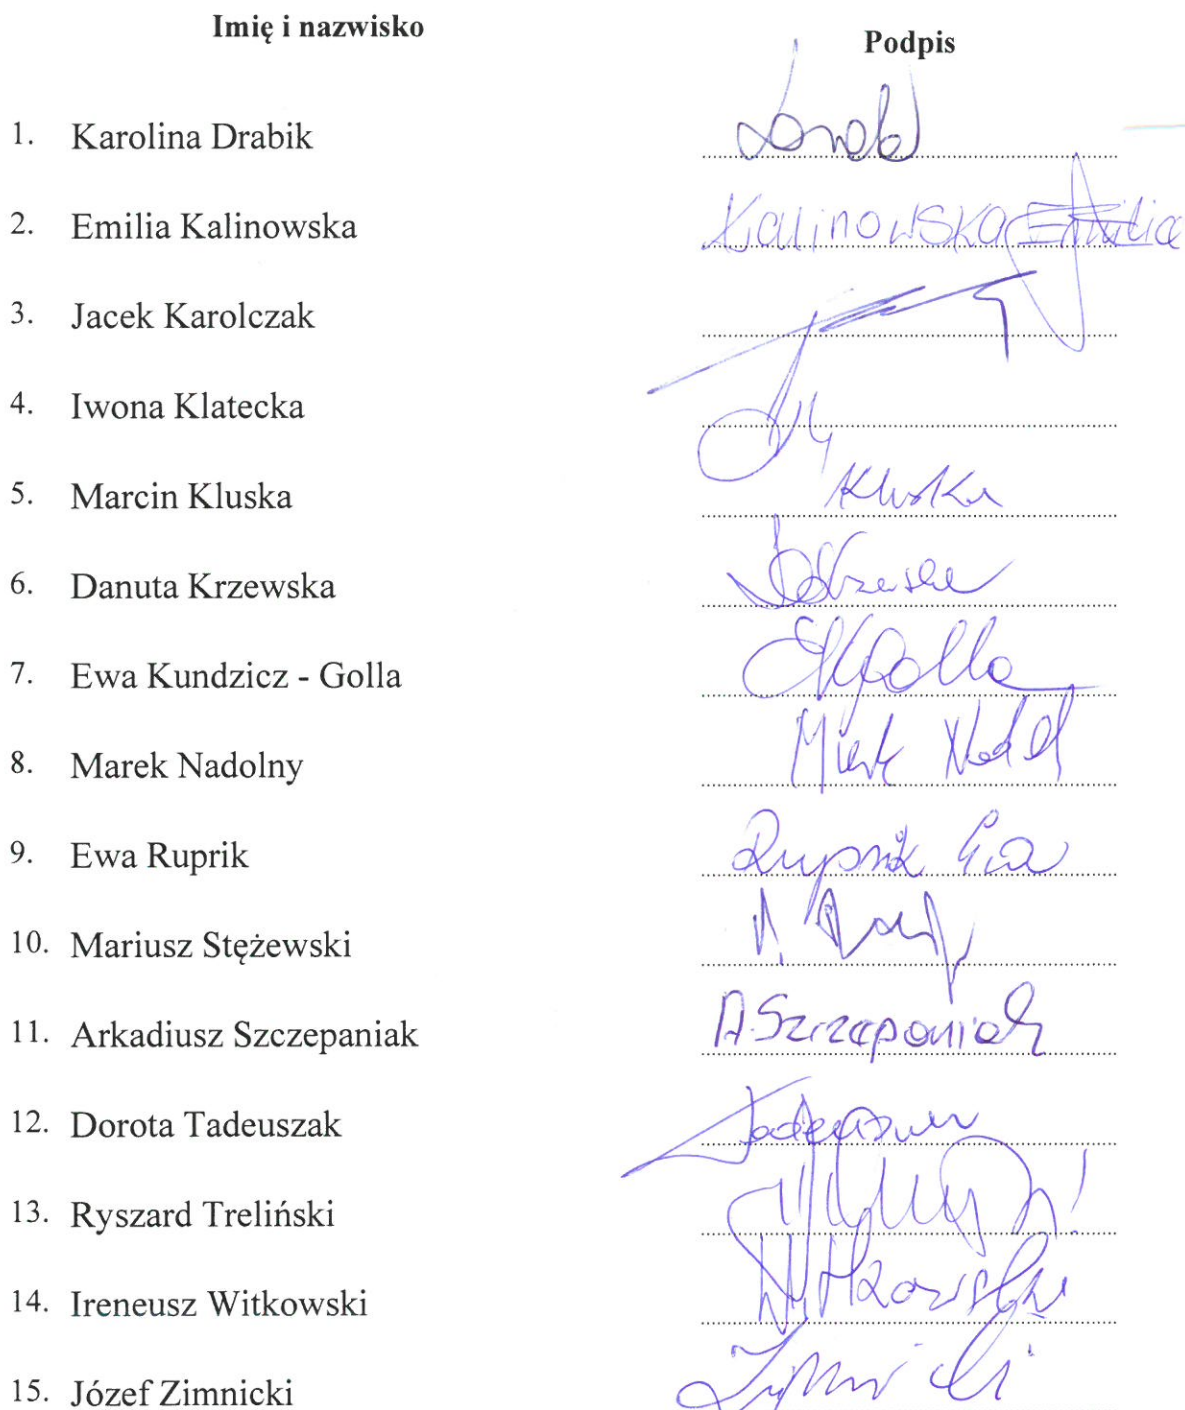 Imię i nazwisko Podpis
1. Karolina Drabik
2. Emilia Kalinowska Kalinowska Emilia
3. Jacek Karolczak
4. Iwona Klatecka
5. Marcin Kluska Kluska
6. Danuta Krzewska DKrzewska
7. Ewa Kundzicz - Golla EKGolla
8. Marek Nadolny
9. Ewa Ruprik Ewa
10. Mariusz Stężewski
11. Arkadiusz Szczepaniak A. Szczepaniak
12. Dorota Tadeuszak
13. Ryszard Treliński
14. Ireneusz Witkowski Witkowski
15. Józef Zimnicki Zimnicki